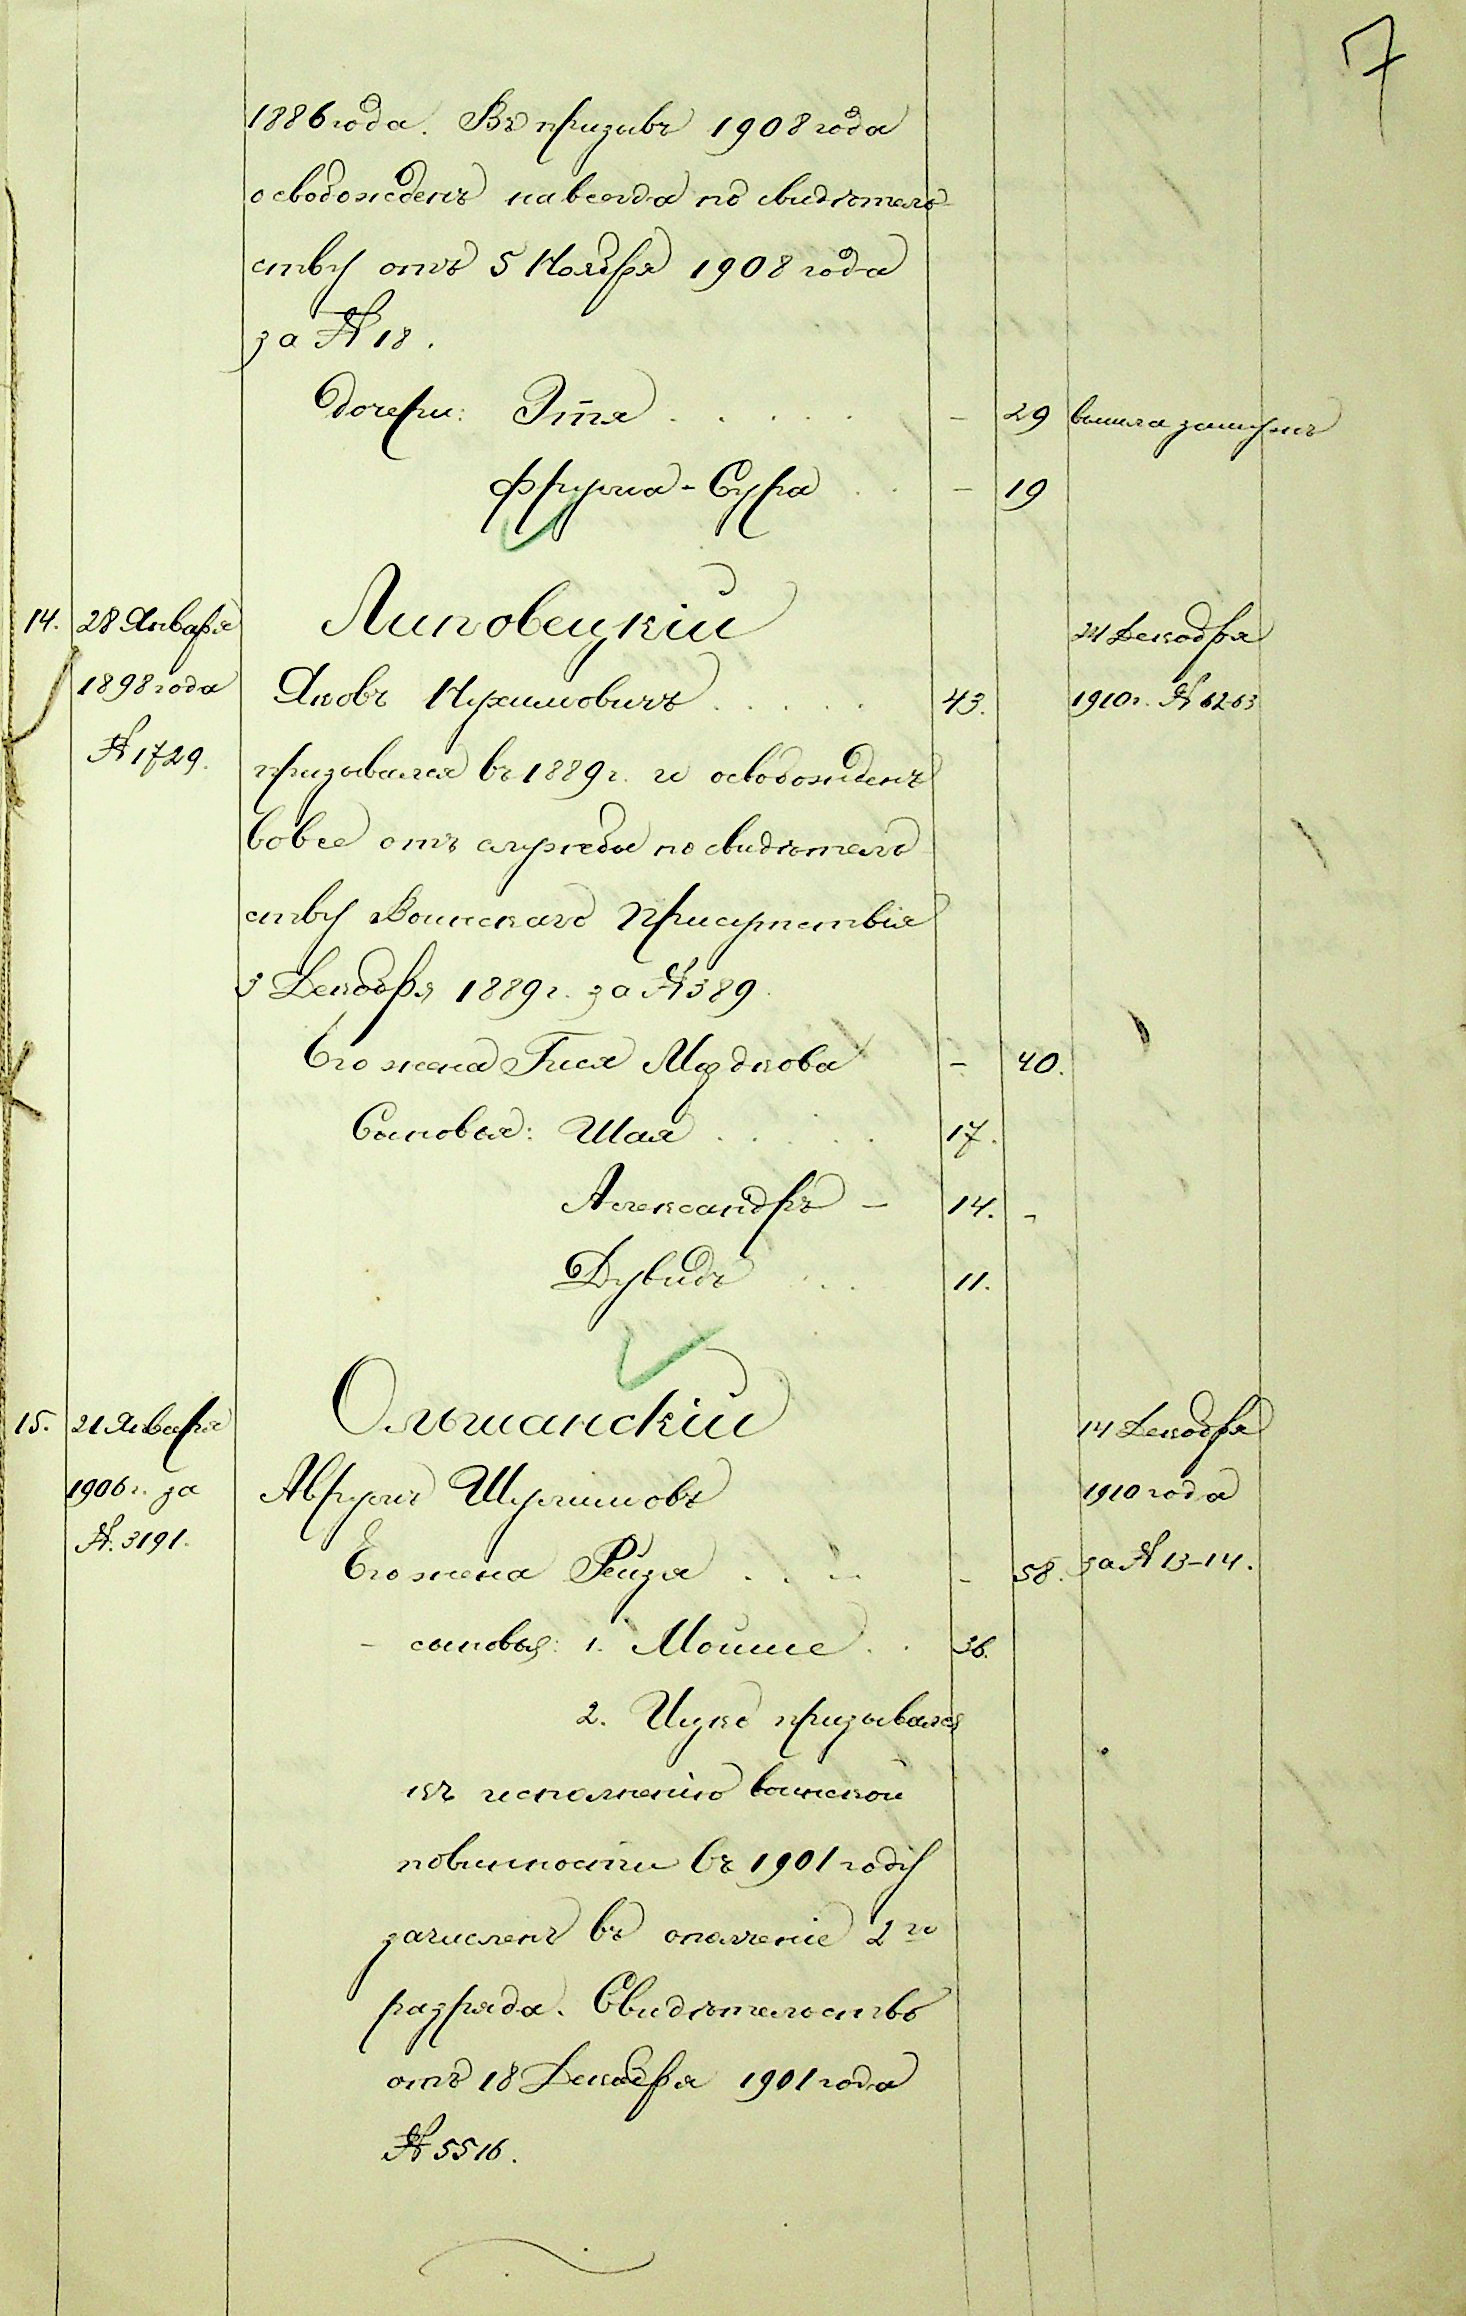 7
1886 года. Въ призывъ 1908 года
освобожденъ навсегда по свидѣтель
ству отъ 5 Ноября 1908 года
за № 18.
Дочери: Этя . . . . . - 29 вышла замужъ
Фрума-Сура . . - 19
Липовецкій
14. 28 Января 24 Декабря
1898 года Яковъ Нухимовичъ . . . . . 43. 1910 г. № 6263
№ 1729. призывался въ 1889 г. и освобожденъ
вовсе отъ службы по свидѣтель
ству Воинскаго Присутствія
5 Декабря 1889 г. за № 389.
Его жена Гися Мордкова - 40.
Сыновья: Шая . . . . . 17.
Александръ - 14. -
Дувидъ . . . 11.
Ольшанскій
15. 21 Января 14 Декабря
1906 г. за Аврумъ Шулимовъ 1910 года
№. 3191. Его жена Рейзя . . . - 58. за № 13-14.
- сыновья: 1. Мойше . . 36.
2. Ицко призывался
къ исполненію воинской
повинности въ 1901 году
зачисленъ въ ополченіе 2го
разряда. Свидѣтельство
отъ 18 Декабря 1901 года
№ 5516.